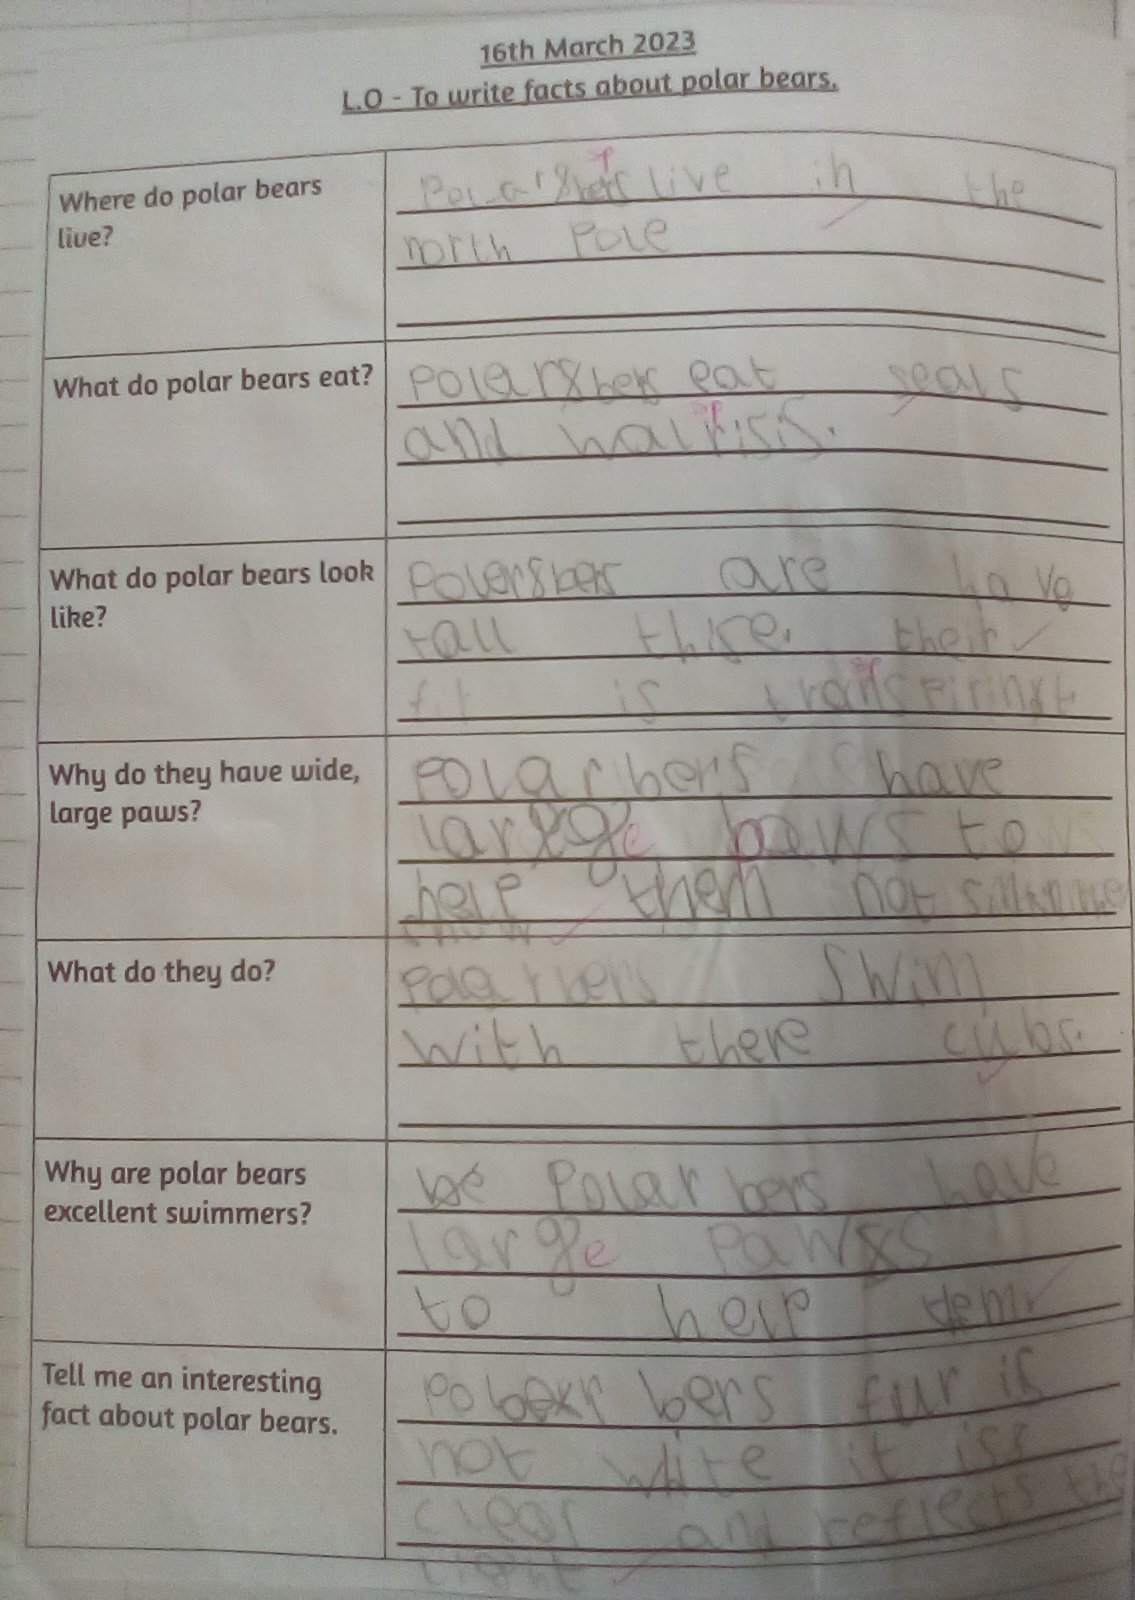 16th March 2023
L.O - To write facts about polar bears.
Where do polar bears
live?
live in the
north Pole
What do polar bears eat?
eat seals
and walrisis.
What do polar bears look
like?
are have
tall their
is
Why do they have wide,
large paws?
Polar bers have
large paws to
help them not
What do they do?
Polar bers swim
with there cubs.
Why are polar bears
excellent swimmers?
Polar bers have
large paws
to help
Tell me an interesting
fact about polar bears.
bers fur is
not white it iss
clear and reflects the
light